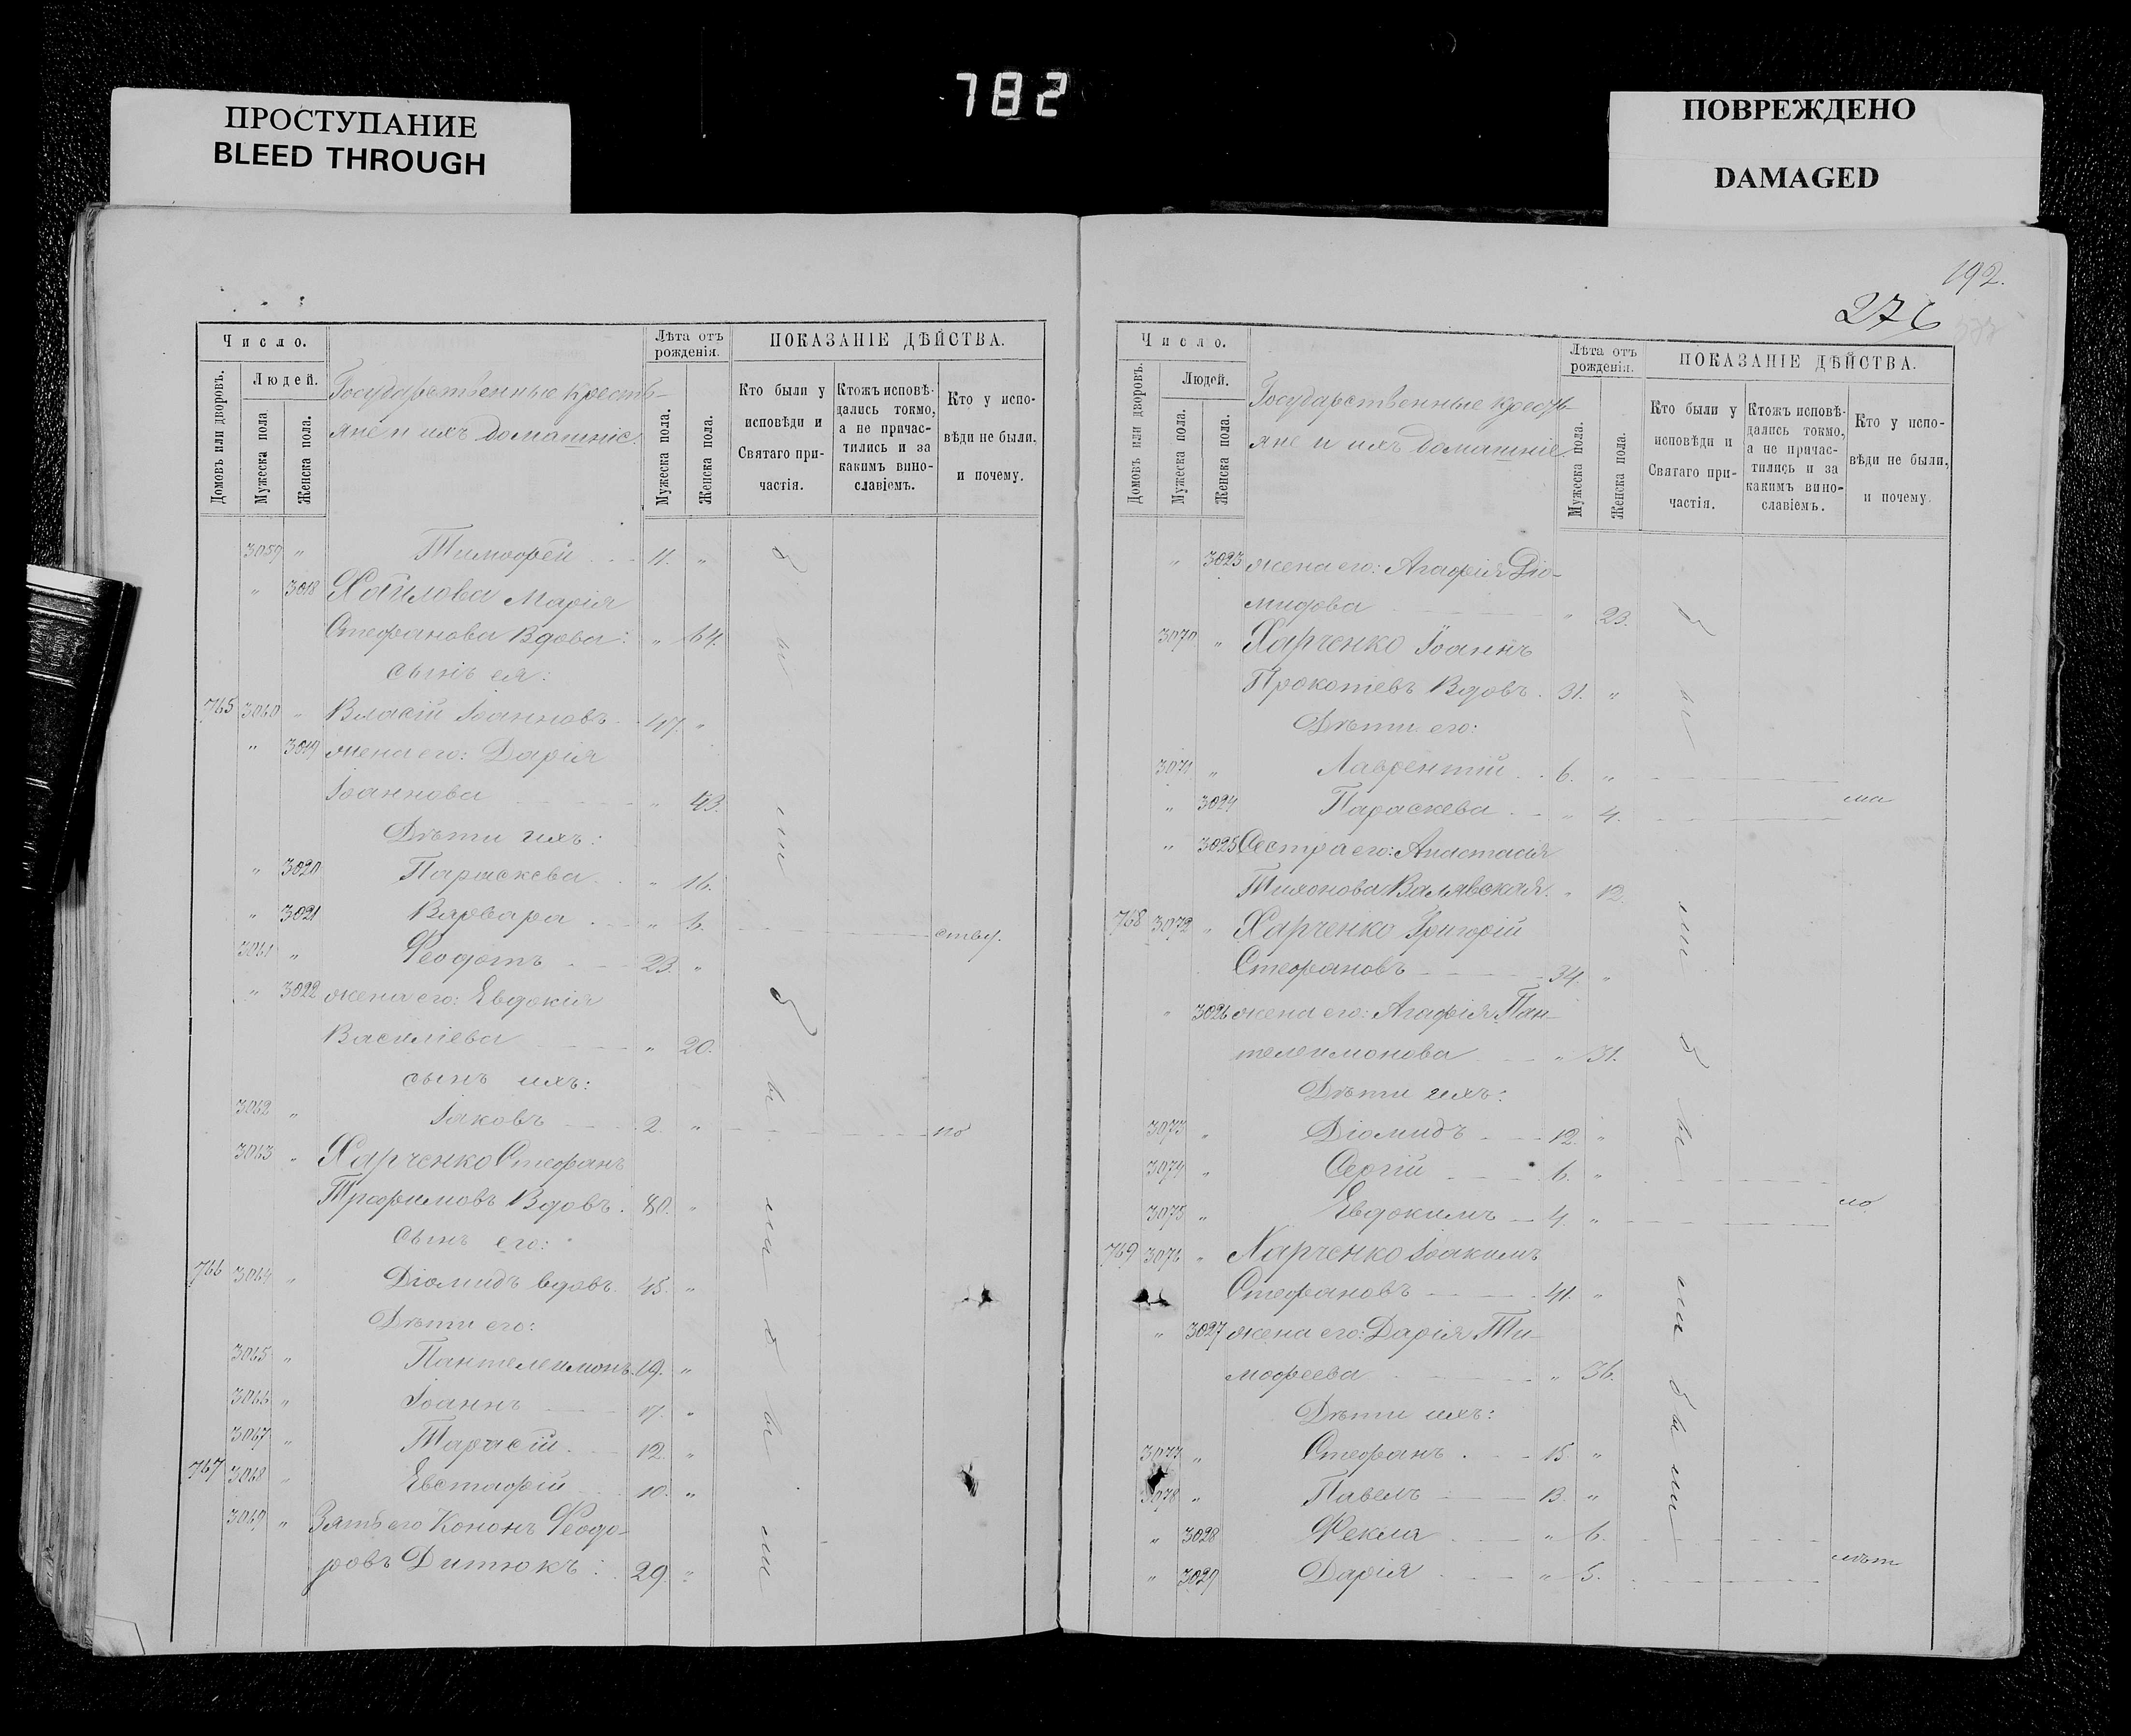 782
ПРОСТУПАНИЕ
BLEED THROUGH
ПОВРЕЖДЕНО
DAMAGED
Число.
Людей.
Домовъ или дворовъ.
Мужеска пола
Женска пола.
Государственные кресть-
яне и ихъ домашніе.
Лѣта отъ
рожденія.
Мужеска пола.
Женска пола.
ПОКАЗАНІЕ ДѢЙСТВА.
Кто были у
исповѣди и
Святаго при-
частія.
Ктожъ исповѣ-
дались токмо,
а не причас-
тились и за
какимъ вино-
славіемъ.
Кто у испо-
вѣди не были,
и почему.
3059 " Тимофей 11. "
" 3018 Марія
Стефанова Вдова: " 64.
сынъ ея:
765 3060 " Власій Іоанновъ 47. "
" 3019 жена его: Дарія
Іоаннова " 43.
Дѣти ихъ:
" 3020 Параскева " 16.
" 3021 Варвара " 6.
3061 " Феодотъ 23. "
" 3022 жена его: Евдокія
Василіева " 20.
сынъ ихъ:
3062 " Іаковъ 2. " по
3063 " Харченко Стефанъ
Трофимовъ Вдовъ. 80. "
Сынъ его:
766 3064 " Діомидъ вдовъ. 45. "
Дѣти его:
3065 " Пантелеимонъ. 19. "
3066 " Іоаннъ 17. "
3067 " Тарасій 12. "
767 3068 " Евстафій 10. "
3069 " Зять его Кононъ Феодо-
ровъ Дитюкъ: 29. "
были
были
192.
276
Число.
Людей.
Домовъ или дворовъ.
Мужеска пола.
Женска пола.
Государственные кресть-
яне и ихъ домашніе.
Лѣта отъ
рожденія.
Мужеска пола.
Женска пола.
ПОКАЗАНІЕ ДѢЙСТВА.
Кто были у
исповѣди и
Святаго при-
частія.
Ктожъ исповѣ-
дались токмо,
а не причас-
тились и за
какимъ вино-
славіемъ.
Кто у испо-
вѣди не были,
и почему.
" 3023 жена его: Агафія Діо-
мидова " 23.
3070 " Харченко Іоаннъ
Прокопіевъ Вдовъ. 31. "
Дѣти его:
3071 " Лаврентій 6. "
" 3024 Параскева " 4. ма
" 3025 Сестра его: Анастасія
Тихонова " 12.
768 3072 " Харченко Григорій
Стефановъ 34. "
" 3026 жена его: Агафія Пан-
телеимонова " 31.
Дѣти ихъ:
3073 " Діомидъ 12. "
3074 " Сергій 6. "
3075 " Евдокимъ 4. " ло
769 3076 " Харченко Іоакимъ
Стефановъ 41. "
" 3027 жена его: Дарія Ти-
мофеева " 36.
Дѣти ихъ:
3077 " Стефанъ 15. "
3078 " Павелъ 13. "
" 3028 Фекла " 6.
" 3029 Дарія " 5. лѣт
были
были